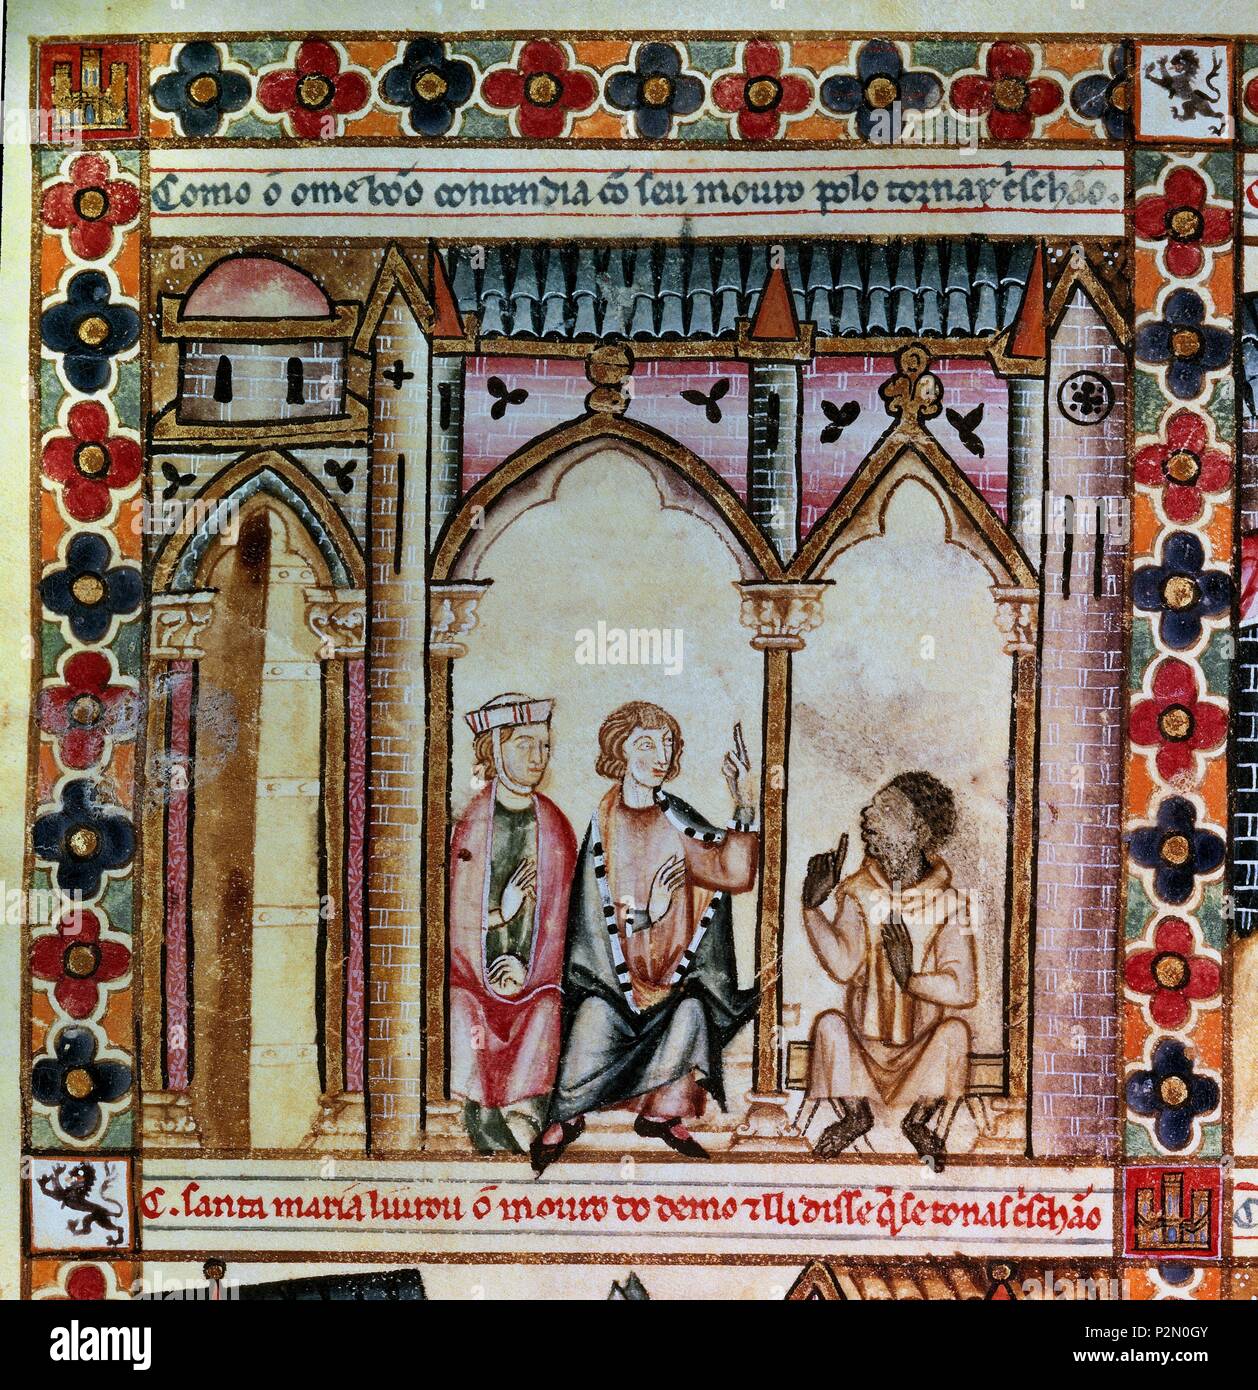 Como õ ome bõo contendia cõ seu mouro polo tornar c̃schão.
C. santa maria liurou õ mouro do demo ⁊ lli disse q̃ se tonas c̃schão
alamy
alamy
Image ID: P2N0GY
www.alamy.com